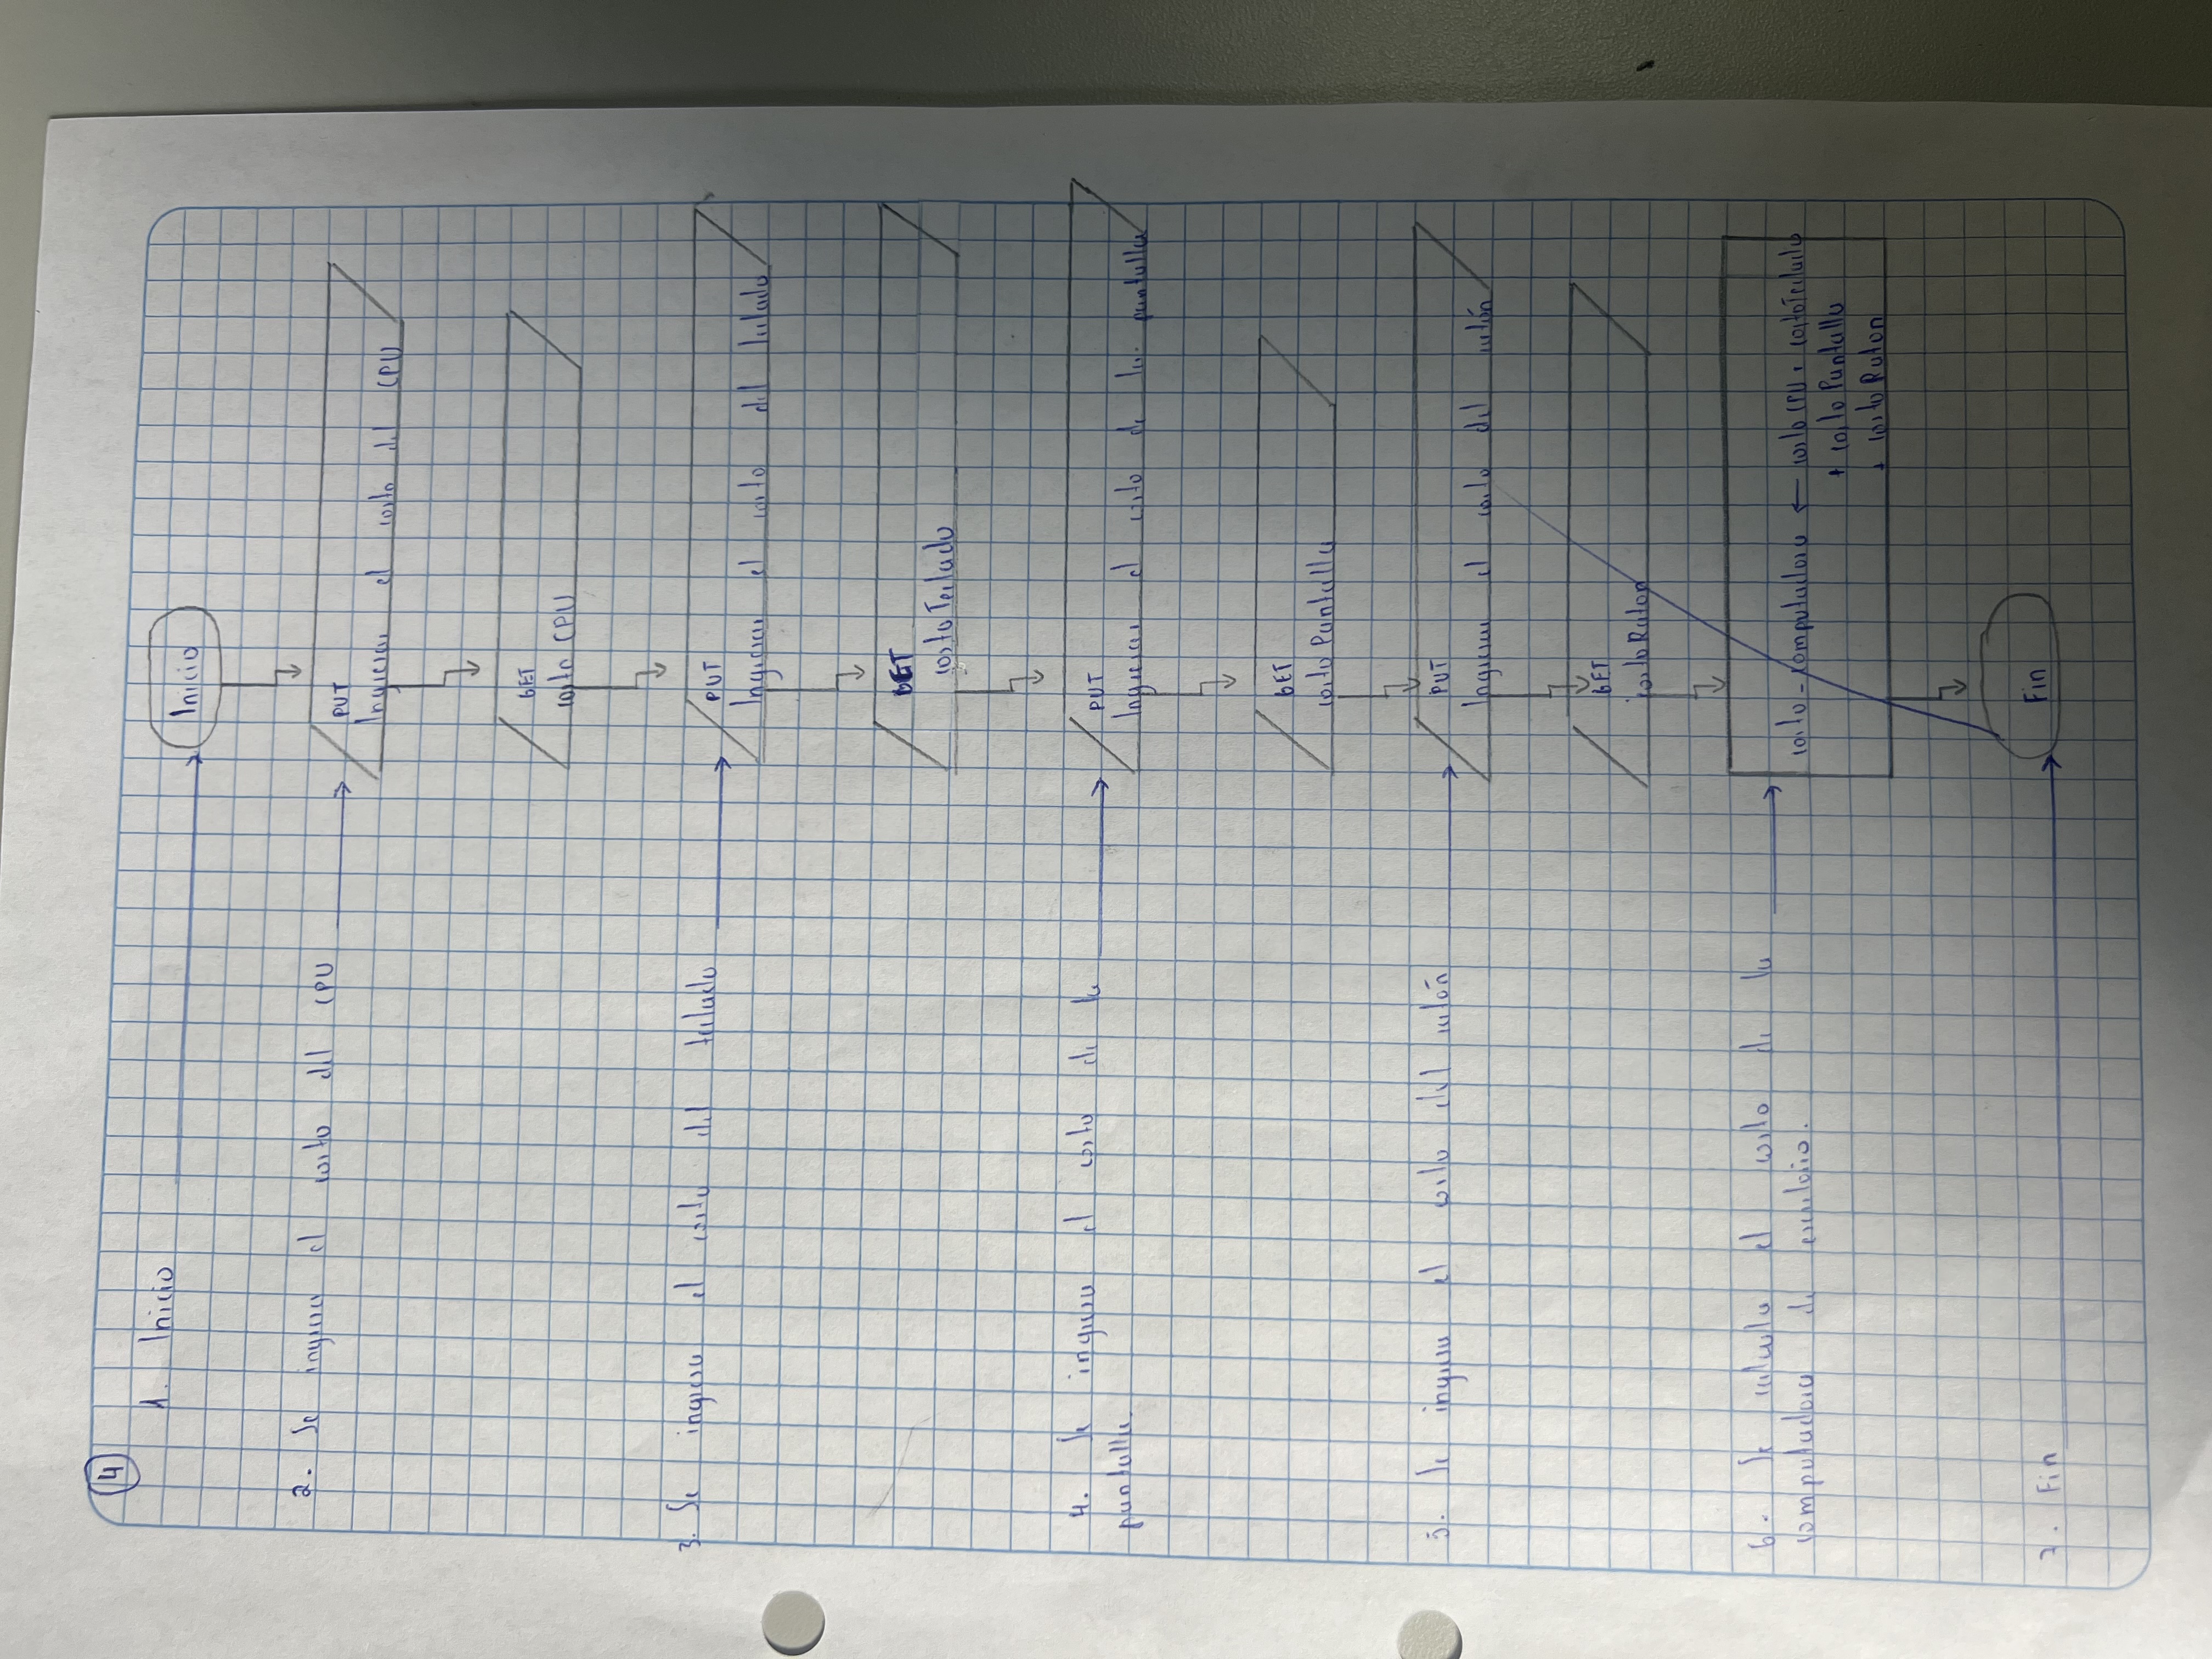 4
1. Inicio
Inicio
2. Se ingresa el costo del CPU
PUT
Ingresar el costo del CPU
GET
costo CPU
3. Se ingresa el costo del teclado
PUT
Ingresar el costo del teclado
GET
costoTeclado
4. Se ingresa el costo de la
pantalla.
PUT
Ingresar el costo de la pantalla
GET
costo Pantalla
5. Se ingresa el costo del ratón
PUT
Ingresar el costo del ratón
GET
costoRaton
6. Se calcula el costo de la
computadora de escritorio.
costo-computadora ← costo CPU + costoTeclado
+ costo Pantalla
+ costo Raton
7. Fin
Fin